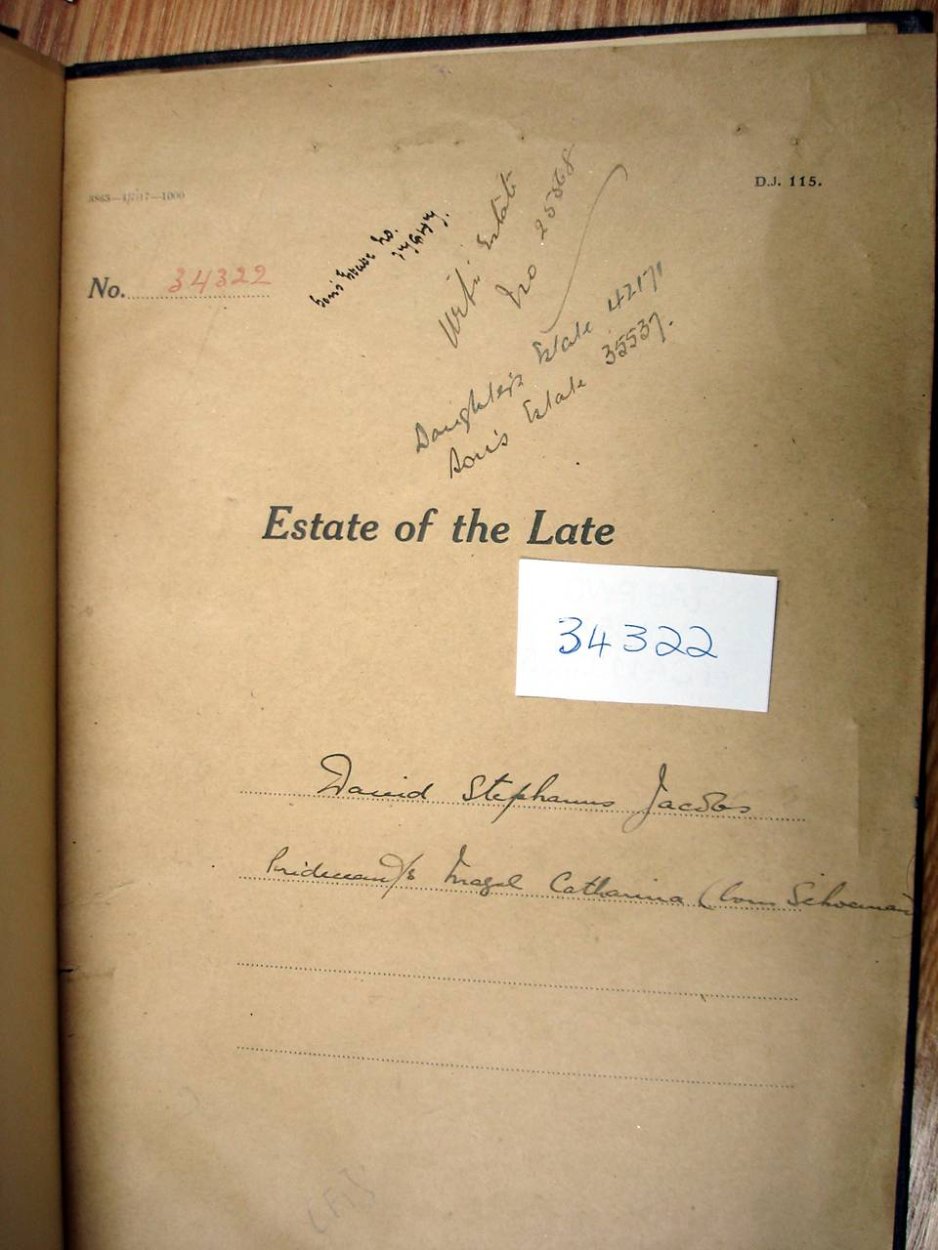 D.J. 115.
No. 34322
Son's Estate No.
Wife's Estate
No 25568
Daughter's Estate 42171
Son's Estate 35537.
Estate of the Late
34322
David Stephanus Jacobs
Pridecean/s Catharina (born Schoeman